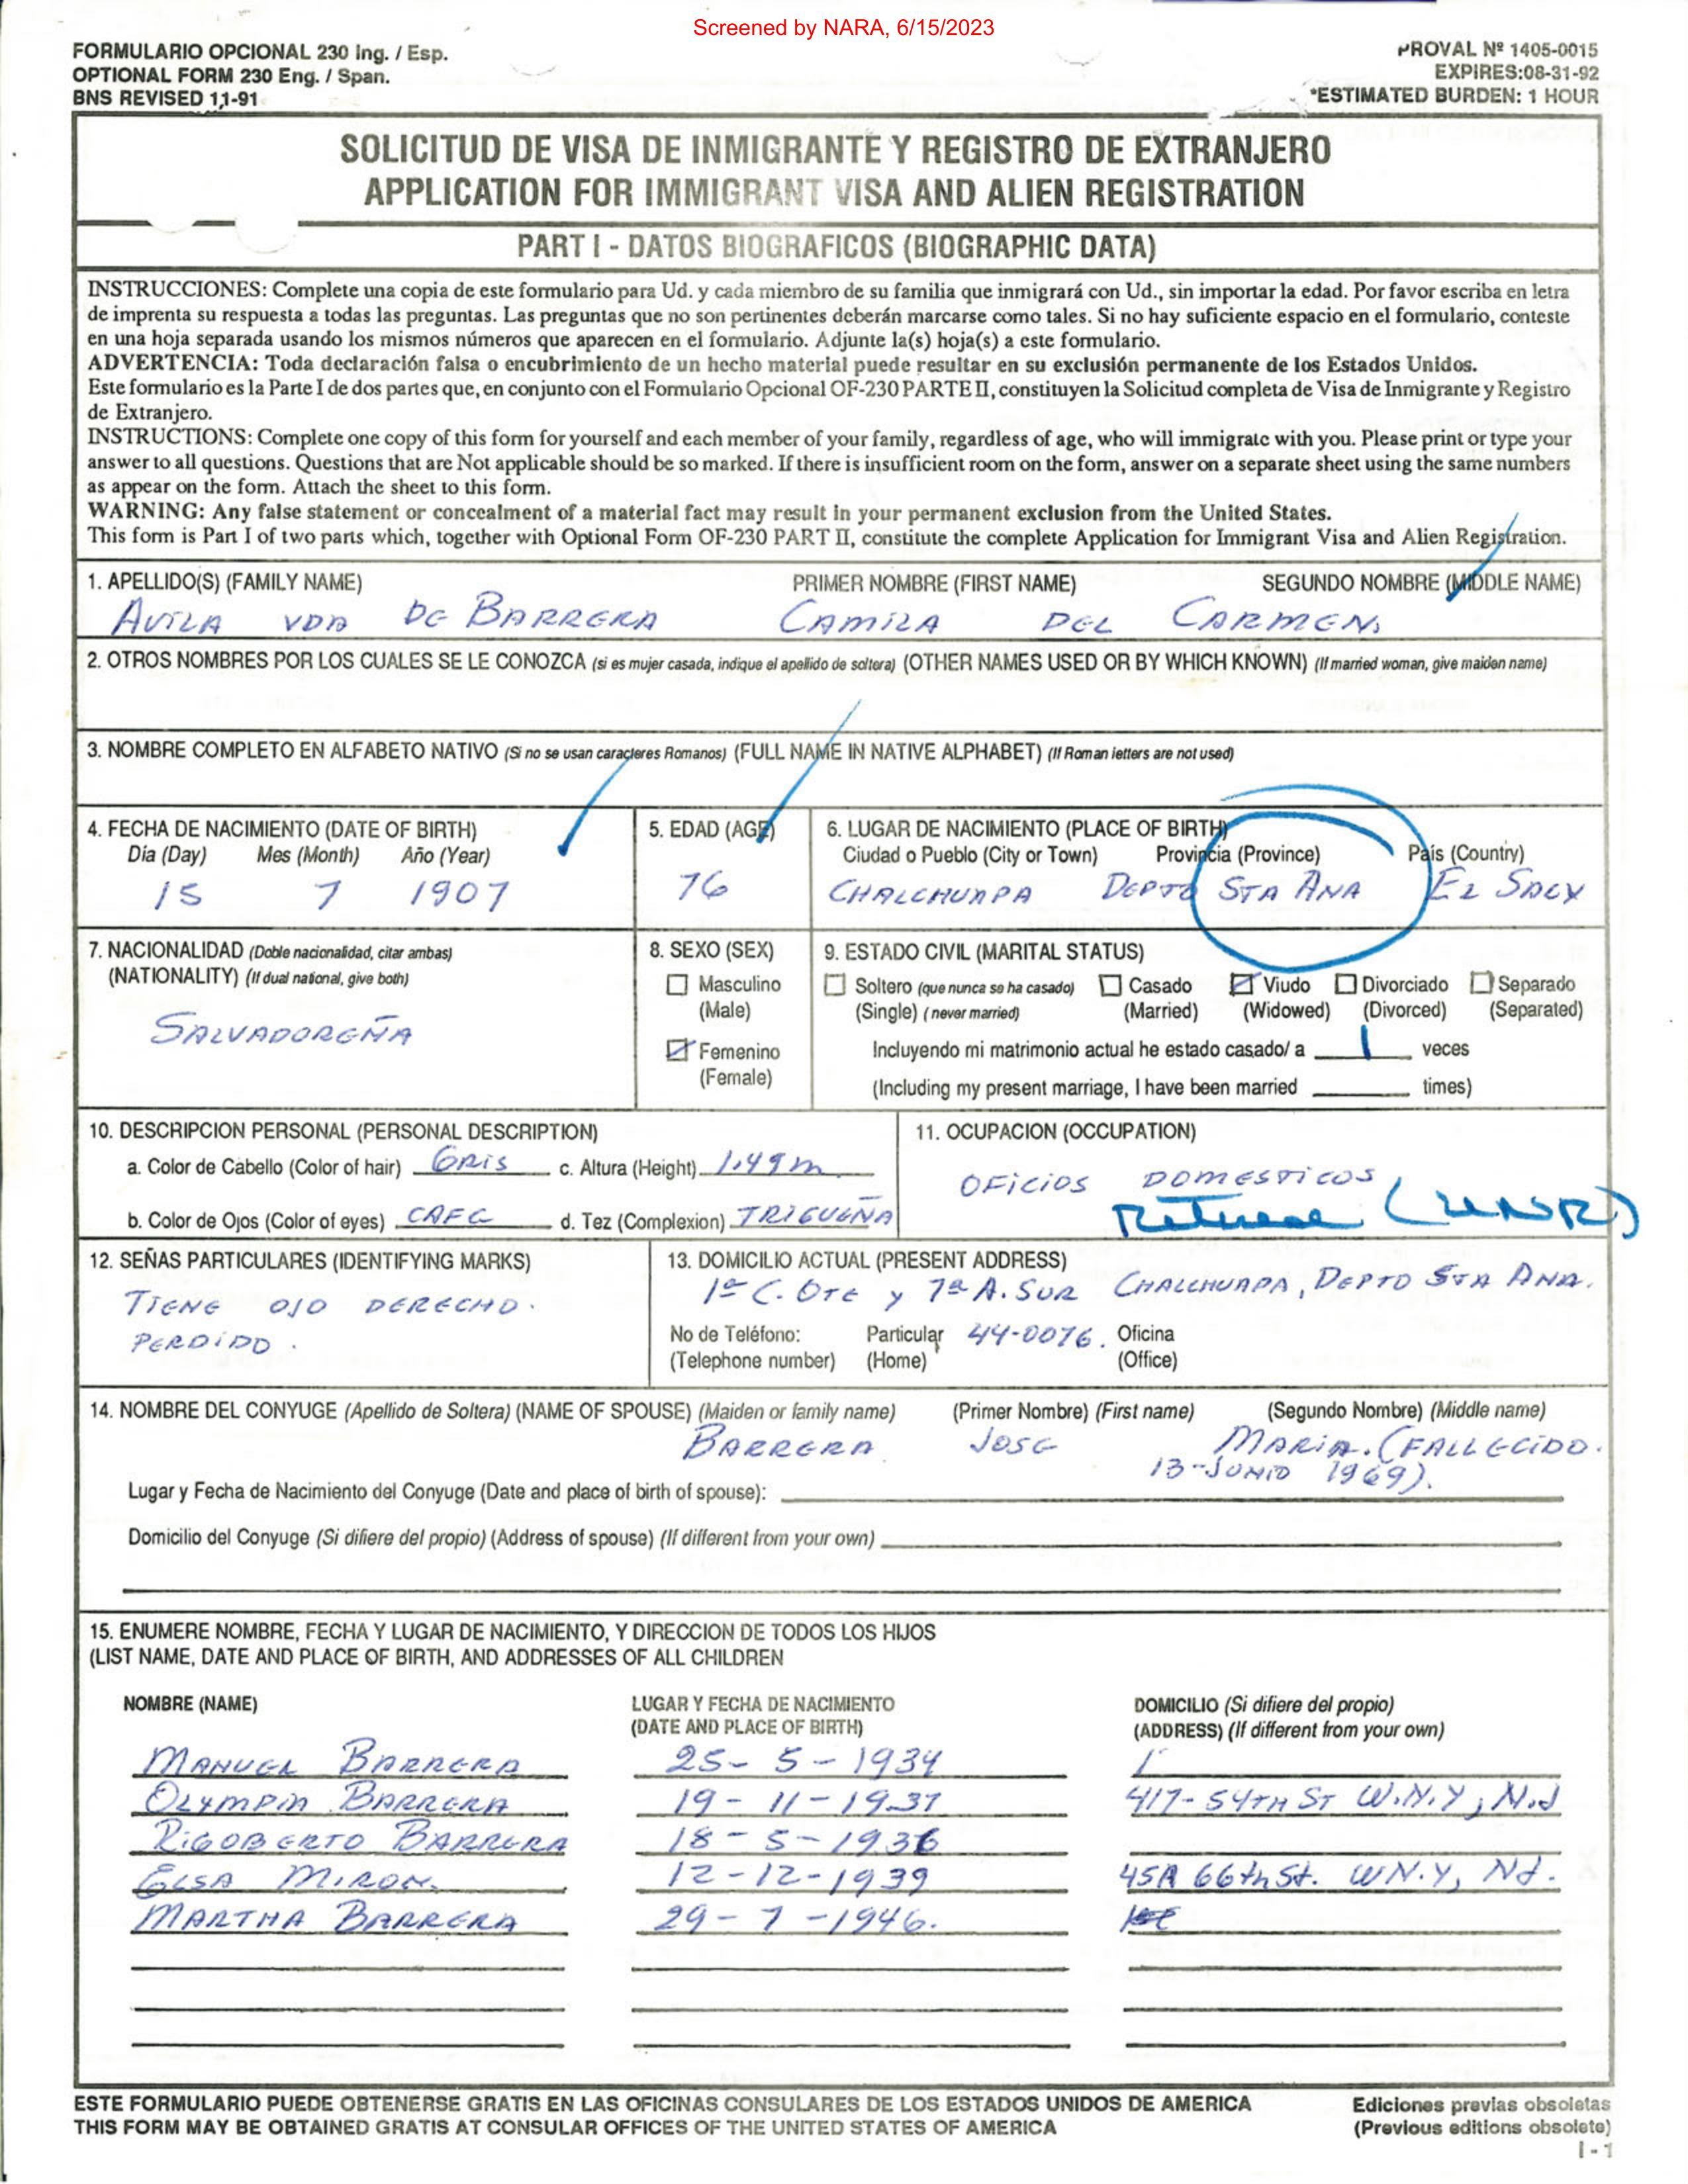 Screened by NARA, 6/15/2023
FORMULARIO OPCIONAL 230 Ing. / Esp.
OPTIONAL FORM 230 Eng. / Span.
BNS REVISED 11-91
PROVAL Nº 1405-0015
EXPIRES:08-31-92
*ESTIMATED BURDEN: 1 HOUR
SOLICITUD DE VISA DE INMIGRANTE Y REGISTRO DE EXTRANJERO
APPLICATION FOR IMMIGRANT VISA AND ALIEN REGISTRATION
PART I - DATOS BIOGRAFICOS (BIOGRAPHIC DATA)
INSTRUCCIONES: Complete una copia de este formulario para Ud. y cada miembro de su familia que inmigrará con Ud., sin importar la edad. Por favor escriba en letra
de imprenta su respuesta a todas las preguntas. Las preguntas que no son pertinentes deberán marcarse como tales. Si no hay suficiente espacio en el formulario, conteste
en una hoja separada usando los mismos números que aparecen en el formulario. Adjunte la(s) hoja(s) a este formulario.
ADVERTENCIA: Toda declaración falsa o encubrimiento de un hecho material puede resultar en su exclusión permanente de los Estados Unidos.
Este formulario es la Parte I de dos partes que, en conjunto con el Formulario Opcional OF-230 PARTE II, constituyen la Solicitud completa de Visa de Inmigrante y Registro
de Extranjero.
INSTRUCTIONS: Complete one copy of this form for yourself and each member of your family, regardless of age, who will immigrate with you. Please print or type your
answer to all questions. Questions that are Not applicable should be so marked. If there is insufficient room on the form, answer on a separate sheet using the same numbers
as appear on the form. Attach the sheet to this form.
WARNING: Any false statement or concealment of a material fact may result in your permanent exclusion from the United States.
This form is Part I of two parts which, together with Optional Form OF-230 PART II, constitute the complete Application for Immigrant Visa and Alien Registration.
1. APELLIDO(S) (FAMILY NAME) PRIMER NOMBRE (FIRST NAME) SEGUNDO NOMBRE (MIDDLE NAME)
AVILA VDA DE BARRERA CAMILA DEL CARMEN
2. OTROS NOMBRES POR LOS CUALES SE LE CONOZCA (si es mujer casada, indique el apellido de soltera) (OTHER NAMES USED OR BY WHICH KNOWN) (If married woman, give maiden name)
3. NOMBRE COMPLETO EN ALFABETO NATIVO (Si no se usan caracteres Romanos) (FULL NAME IN NATIVE ALPHABET) (If Roman letters are not used)
4. FECHA DE NACIMIENTO (DATE OF BIRTH) 5. EDAD (AGE) 6. LUGAR DE NACIMIENTO (PLACE OF BIRTH)
Dia (Day) Mes (Month) Año (Year) Ciudad o Pueblo (City or Town) Provincia (Province) País (Country)
15 7 1907 76 CHALCHUAPA DEPTO STA ANA EL
7. NACIONALIDAD (Doble nacionalidad, citar ambas) 8. SEXO (SEX) 9. ESTADO CIVIL (MARITAL STATUS)
(NATIONALITY) (If dual national, give both)
Masculino Soltero (que nunca se ha casado) Casado Viudo Divorciado Separado
(Male) (Single) (never married) (Married) (Widowed) (Divorced) (Separated)
SALVADOREÑA
Femenino Incluyendo mi matrimonio actual he estado casado/ a 1 veces
(Female) (Including my present marriage, I have been married times)
10. DESCRIPCION PERSONAL (PERSONAL DESCRIPTION) 11. OCUPACION (OCCUPATION)
a. Color de Cabello (Color of hair) GRIS c. Altura (Height) 1.49m
OFICIOS DOMESTICOS
b. Color de Ojos (Color of eyes) CAFE d. Tez (Complexion) TRIGUEÑA
12. SEÑAS PARTICULARES (IDENTIFYING MARKS) 13. DOMICILIO ACTUAL (PRESENT ADDRESS)
TIENE OJO DERECHO 1ª C. OTE y 7ª A. SUR CHALCHUAPA, DEPTO STA ANA.
PERDIDO.
No de Teléfono: Particular 44-0076. Oficina
(Telephone number) (Home) (Office)
14. NOMBRE DEL CONYUGE (Apellido de Soltera) (NAME OF SPOUSE) (Maiden or family name) (Primer Nombre) (First name) (Segundo Nombre) (Middle name)
BARRERA JOSE MARIA. (FALLECIDO.
13-JUNIO 1969).
Lugar y Fecha de Nacimiento del Conyuge (Date and place of birth of spouse):
Domicilio del Conyuge (Si difiere del propio) (Address of spouse) (If different from your own)
15. ENUMERE NOMBRE, FECHA Y LUGAR DE NACIMIENTO, Y DIRECCION DE TODOS LOS HIJOS
(LIST NAME, DATE AND PLACE OF BIRTH, AND ADDRESSES OF ALL CHILDREN
NOMBRE (NAME) LUGAR Y FECHA DE NACIMIENTO DOMICILIO (Si difiere del propio)
(DATE AND PLACE OF BIRTH) (ADDRESS) (If different from your own)
MANUEL BARRERA 25- 5 - 1934
OLYMPIA BARRERA 19 - 11 - 1937 417- 54TH ST W.N.Y, N.J
RIGOBERTO BARRERA 18 - 5 - 1936
ELSA MIRON. 12-12-1939 45A 66th St. WN.Y, NJ.
MARTHA BARRERA 29 - 7 - 1946.
ESTE FORMULARIO PUEDE OBTENERSE GRATIS EN LAS OFICINAS CONSULARES DE LOS ESTADOS UNIDOS DE AMERICA
THIS FORM MAY BE OBTAINED GRATIS AT CONSULAR OFFICES OF THE UNITED STATES OF AMERICA
Ediciones previas obsoletas
(Previous editions obsolete)
I - 1